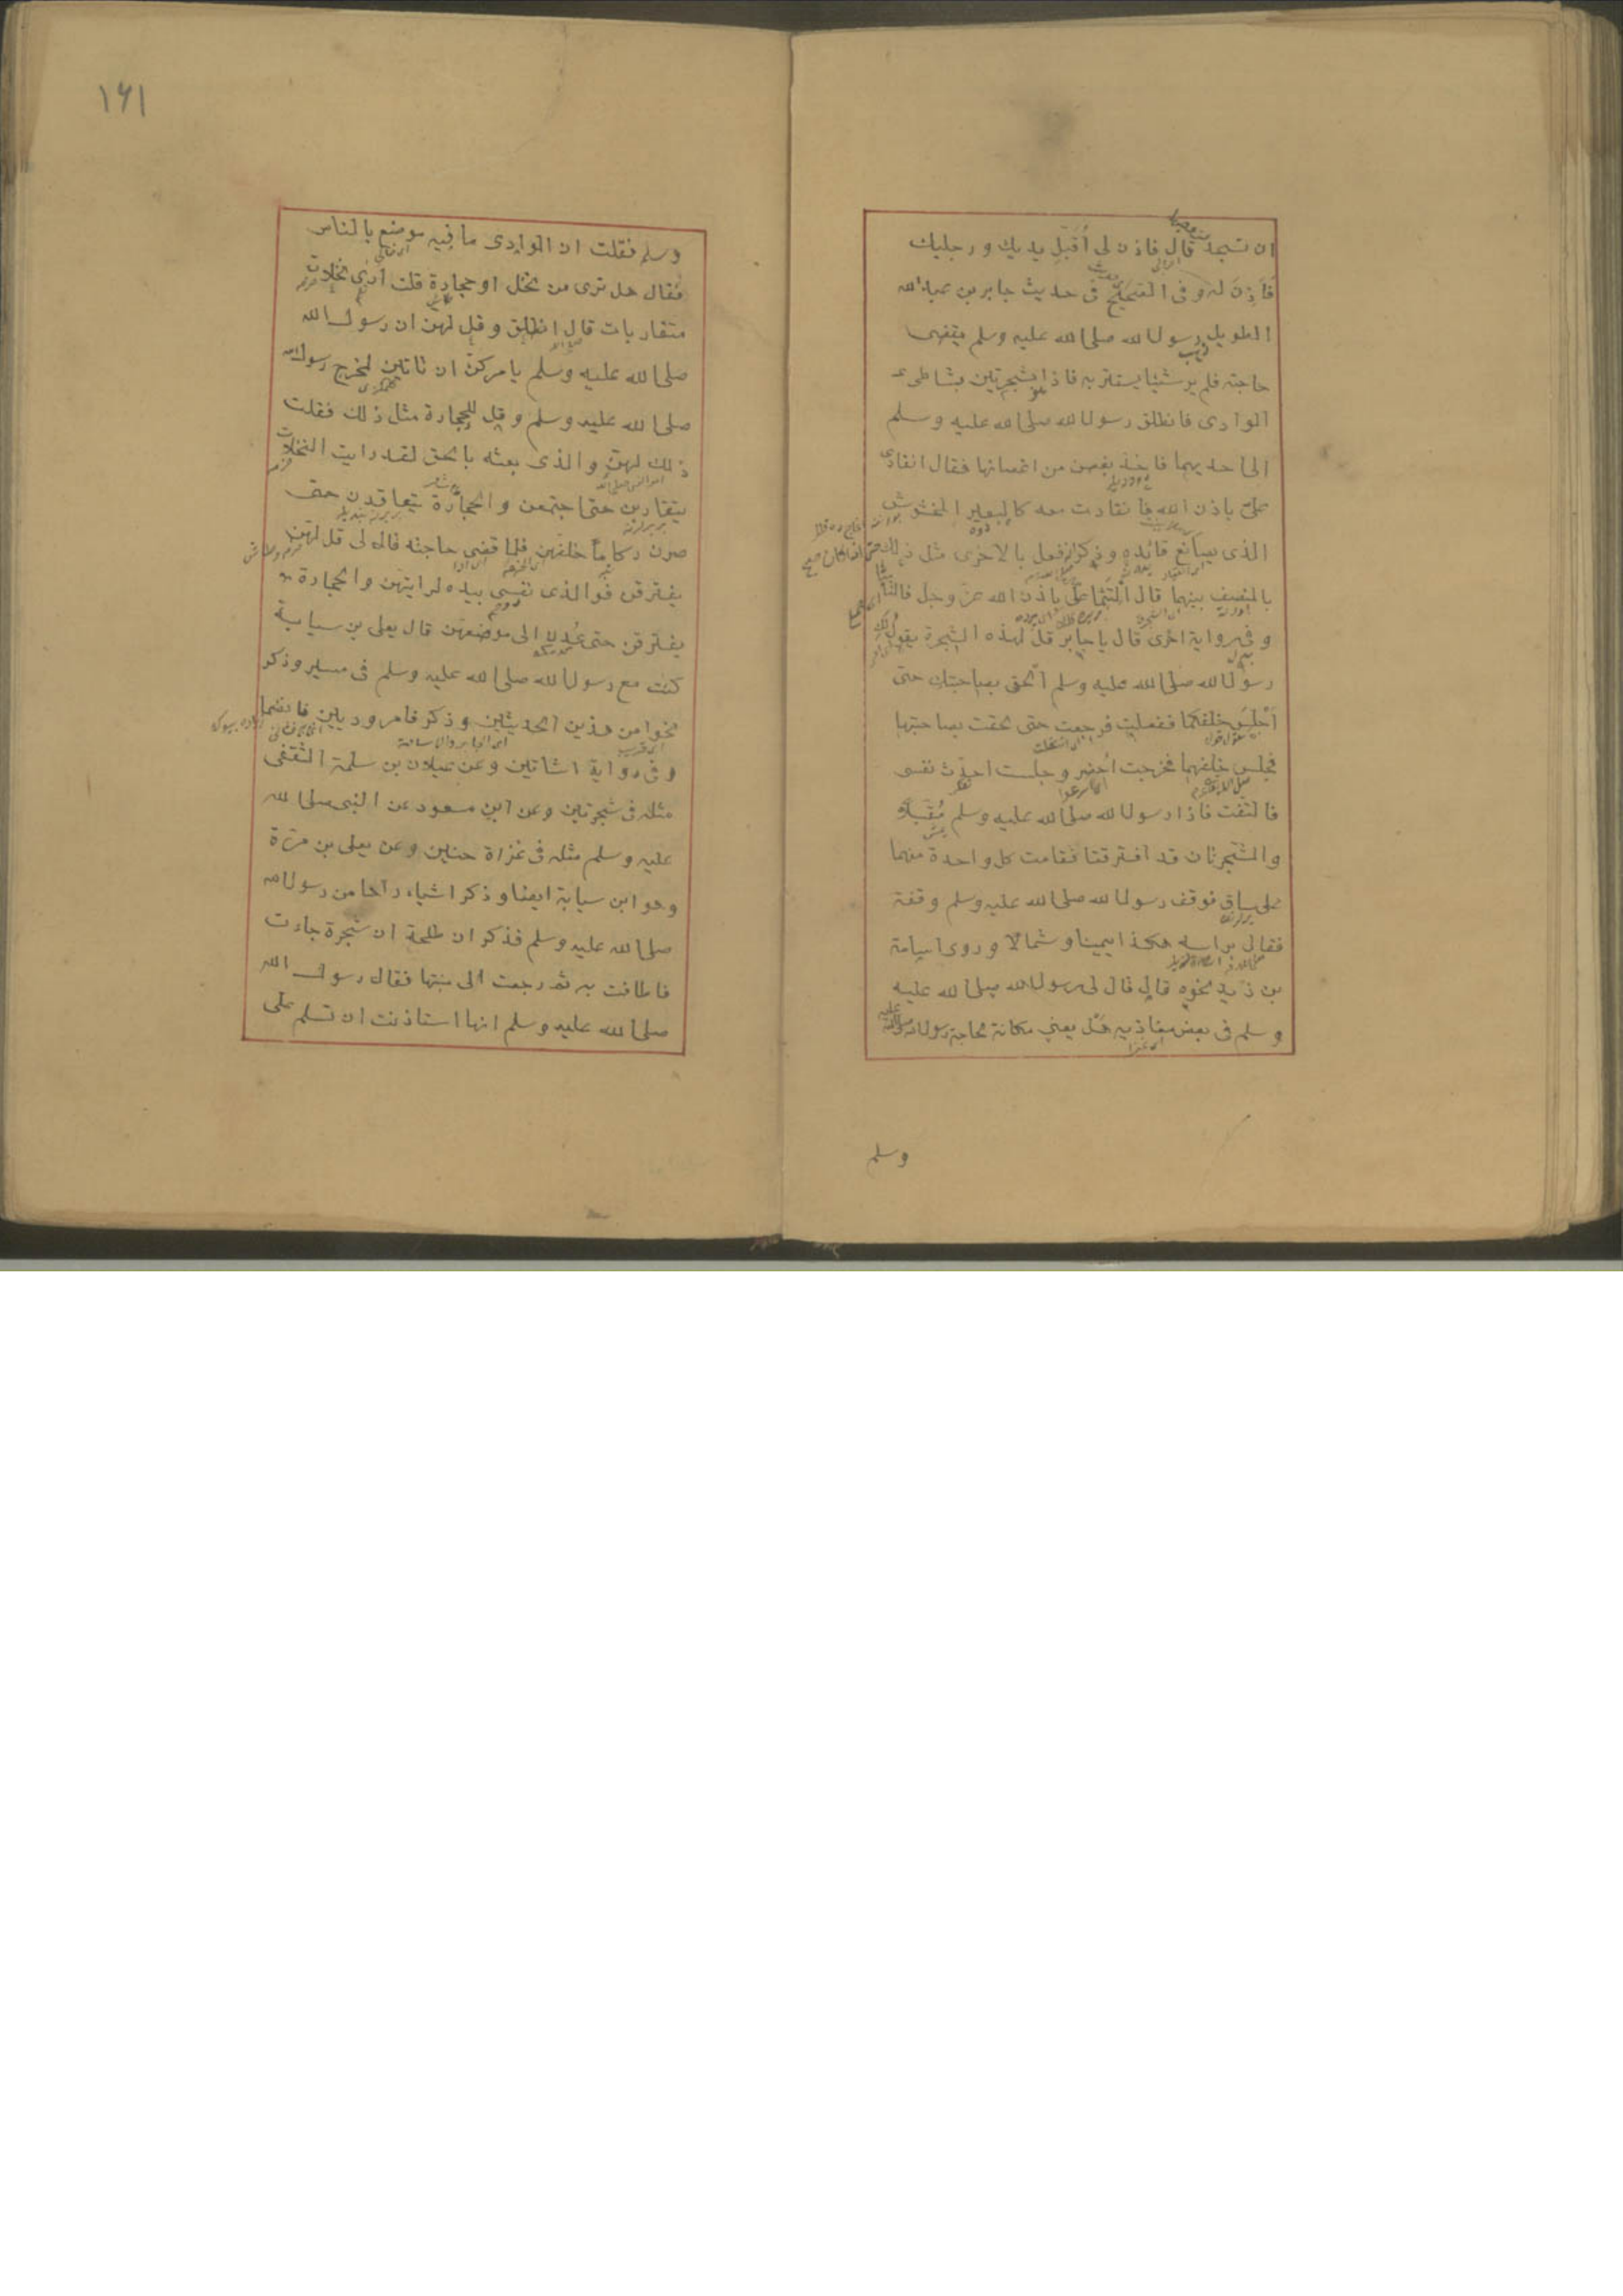 ان تسجد قال فاذن لى أقبل يديك ورجليك
فاذن له وفى الصحيح فى حديث جابر بن عبدالله
الطويل رسول الله صلى الله عليه وسلم يقضى
حاجته فلم ير شيئا يستتر به فاذا بشجرتين بشاطئ
الوادى فانطلق رسول الله صلى الله عليه وسلم
الى احديهما فاخذ بغصن من اغصانها فقال انقادى
على باذن الله فانقادت معه كالبعير المخشوش
الذى يصانع قائده وذكر انه فعل بالاخرى مثل ذلك حتى اذا كان
بالمنصف بينهما قال التئما على باذن الله عز وجل فالتأمتا
وفى رواية اخرى قال يا جابر قل لهذه الشجرة يقول لك
رسول الله صلى الله عليه وسلم الحق بصاحبتك حتى
اجلس خلفكما ففعلت فرجعت حتى لحقت بصاحبتها
فجلس خلفهما فخرجت احضر وجلست احدث نفسى
فالتفت فاذا رسول الله صلى الله عليه وسلم مقبلا
والشجرتان قد افترقتا فقامت كل واحدة منهما
على ساق فوقف رسول الله صلى الله عليه وسلم وقفة
فقال براسه هكذا يمينا وشمالا وروى اسامة
بن زيد نحوه قال قال لى رسول الله صلى الله عليه
وسلم فى بعض مغازيه هل يعنى مكانا لحاجة رسول الله صلى الله عليه
وسلم
١٦١
وسلم فقلت ان الوادى ما فيه موضع بالناس
فقال هل ترى من نخل او حجارة قلت ارى نخلات
متقاربات قال انطلق وقل لهن ان رسول الله
صلى الله عليه وسلم يامركن ان تاتين لمخرج رسول الله
صلى الله عليه وسلم وقل للحجارة مثل ذلك فقلت
ذلك لهن والذى بعثه بالحق لقد رايت النخلات
يتقاربن حتى اجتمعن والحجارة يتعاقدن حتى
صرن ركاما خلفهن فلما قضى حاجته قال لى قل لهن
يفترقن فوالذى نفسى بيده لرايتهن والحجارة
يفترقن حتى عدن الى موضعهن قال يعلى بن سيابة
كنت مع رسول الله صلى الله عليه وسلم فى مسير وذكر
نحوا من هذين الحديثين وذكر فامر وديين فانضما
وفى رواية اشاتين وعن غيلان بن سلمة الثقفى
مثله فى شجرتين وعن ابن مسعود عن النبى صلى الله
عليه وسلم مثله فى غزاة حنين وعن يعلى بن مرة
وهو ابن سيابة ايضا وذكر اشياء راها من رسول الله
صلى الله عليه وسلم فذكر ان طلحة ان شجرة جاءت
فاطافت به ثم رجعت الى منبتها فقال رسول الله
صلى الله عليه وسلم انها استاذنت ان تسلم على